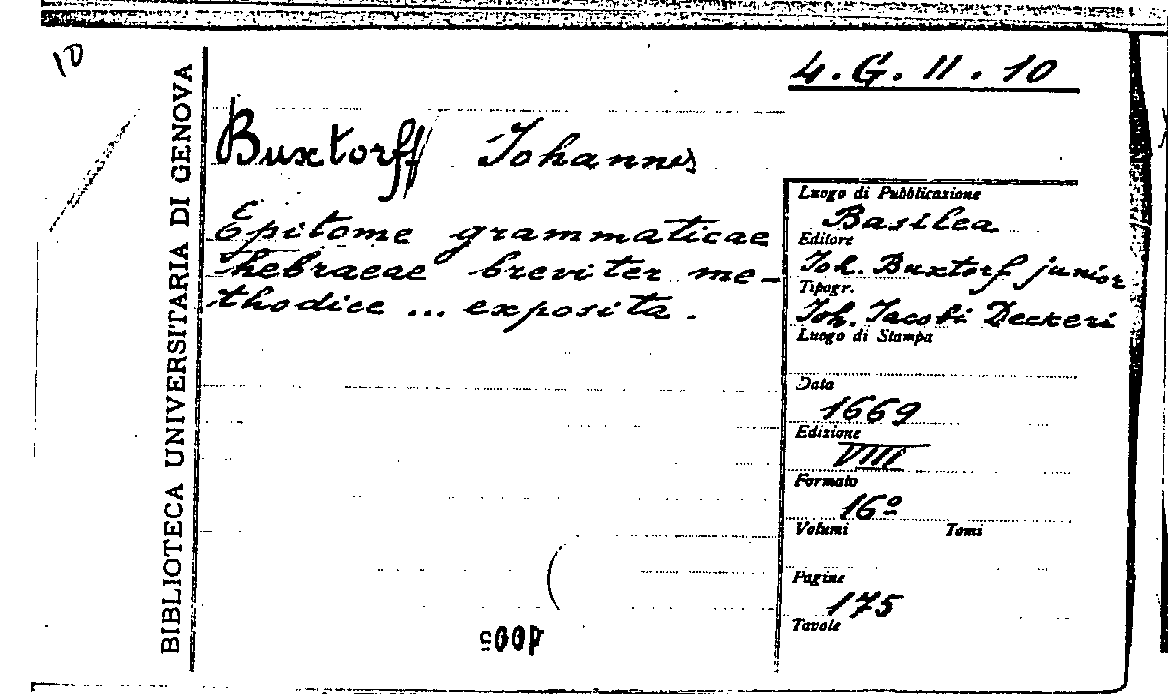 10
4. G. II. 10
BIBLIOTECA UNIVERSITARIA DI GENOVA
Buxtorff Johannes
Epitome grammaticae
hebraeae breviter me-
thodice ... exposita.
Luogo di Pubblicazione
Basilea
Editore
Joh. Buxtorf junior
Tipogr.
Joh. Jacobi Deckeri
Luogo di Stampa
Data
1669
Edizione
VIII
Formato
16º
Volumi Tomi
Pagine
175
Tavole